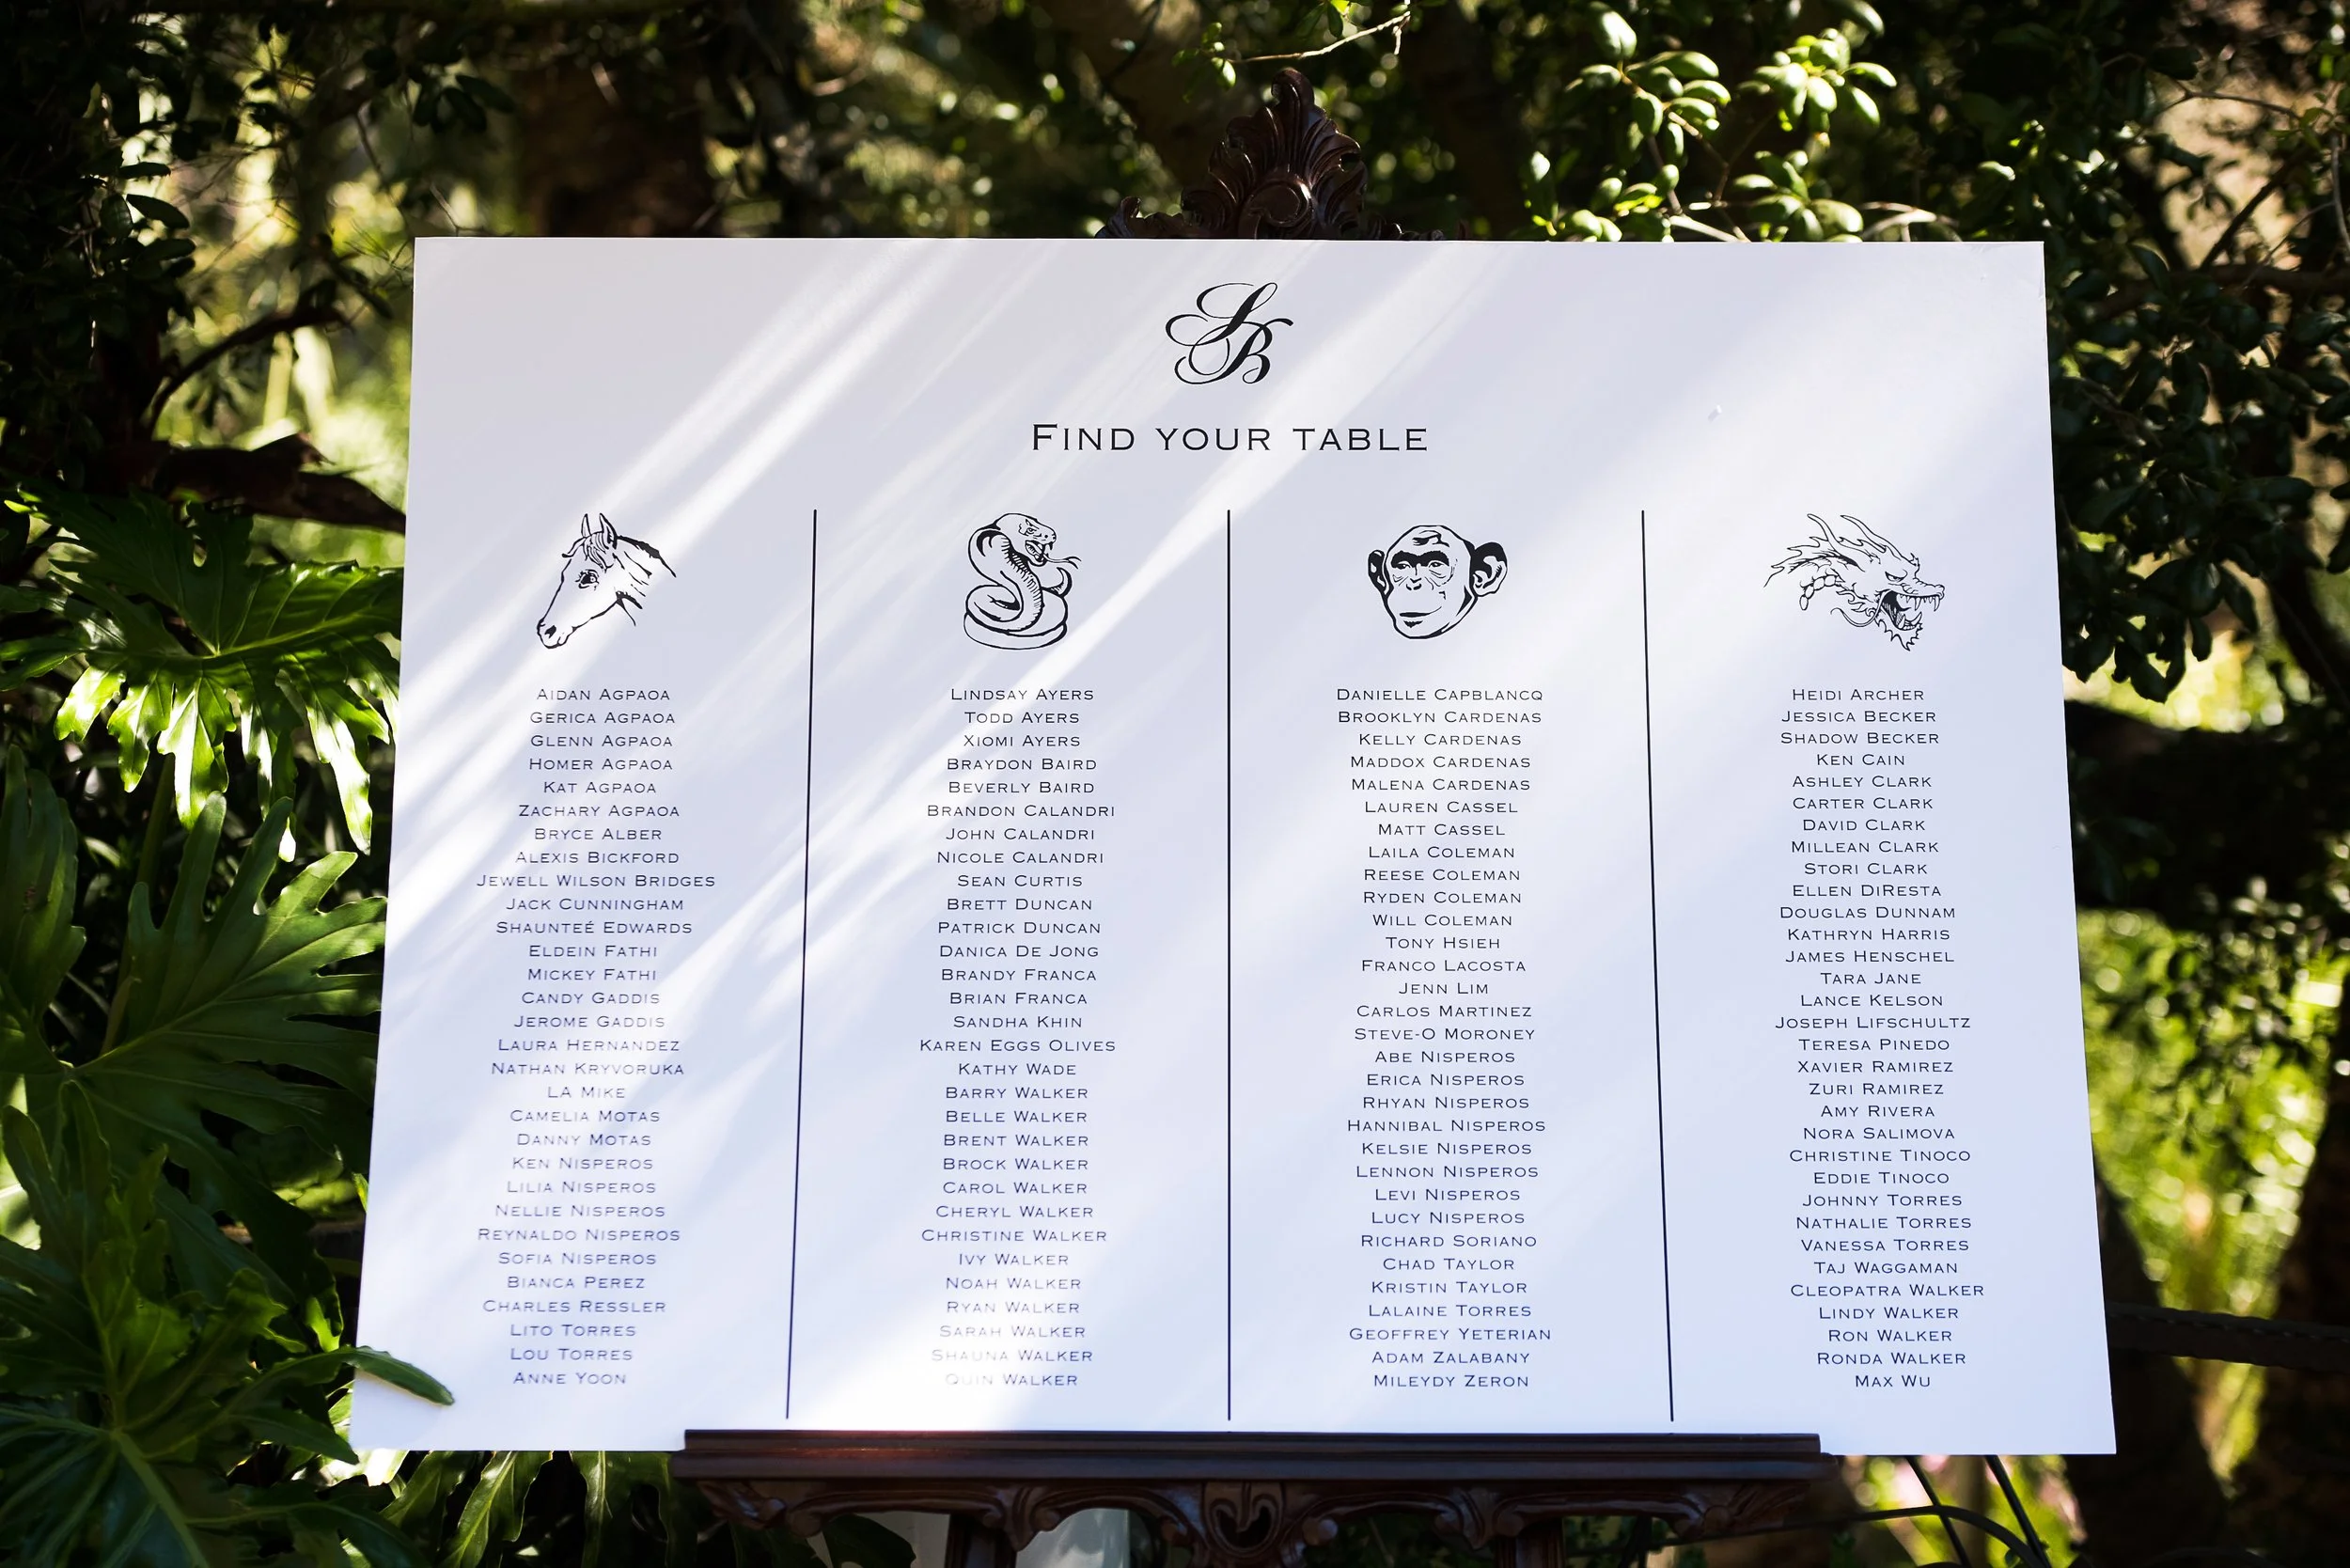 SB
FIND YOUR TABLE
AIDAN AGPAOA
GERICA AGPAOA
GLENN AGPAOA
HOMER AGPAOA
KAT AGPAOA
ZACHARY AGPAOA
BRYCE ALBER
ALEXIS BICKFORD
JEWELL WILSON BRIDGES
JACK CUNNINGHAM
SHAUNTEÉ EDWARDS
ELDEIN FATHI
MICKEY FATHI
CANDY GADDIS
JEROME GADDIS
LAURA HERNANDEZ
NATHAN KRYVORUKA
LA MIKE
CAMELIA MOTAS
DANNY MOTAS
KEN NISPEROS
LILIA NISPEROS
NELLIE NISPEROS
REYNALDO NISPEROS
SOFIA NISPEROS
BIANCA PEREZ
CHARLES RESSLER
LITO TORRES
LOU TORRES
ANNE YOON
LINDSAY AYERS
TODD AYERS
XIOMI AYERS
BRAYDON BAIRD
BEVERLY BAIRD
BRANDON CALANDRI
JOHN CALANDRI
NICOLE CALANDRI
SEAN CURTIS
BRETT DUNCAN
PATRICK DUNCAN
DANICA DE JONG
BRANDY FRANCA
BRIAN FRANCA
SANDHA KHIN
KAREN EGGS OLIVES
KATHY WADE
BARRY WALKER
BELLE WALKER
BRENT WALKER
BROCK WALKER
CAROL WALKER
CHERYL WALKER
CHRISTINE WALKER
IVY WALKER
NOAH WALKER
RYAN WALKER
SARAH WALKER
SHAUNA WALKER
QUIN WALKER
DANIELLE CAPBLANCQ
BROOKLYN CARDENAS
KELLY CARDENAS
MADDOX CARDENAS
MALENA CARDENAS
LAUREN CASSEL
MATT CASSEL
LAILA COLEMAN
REESE COLEMAN
RYDEN COLEMAN
WILL COLEMAN
TONY HSIEH
FRANCO LACOSTA
JENN LIM
CARLOS MARTINEZ
STEVE-O MORONEY
ABE NISPEROS
ERICA NISPEROS
RHYAN NISPEROS
HANNIBAL NISPEROS
KELSIE NISPEROS
LENNON NISPEROS
LEVI NISPEROS
LUCY NISPEROS
RICHARD SORIANO
CHAD TAYLOR
KRISTIN TAYLOR
LALAINE TORRES
GEOFFREY YETERIAN
ADAM ZALABANY
MILEYDY ZERON
HEIDI ARCHER
JESSICA BECKER
SHADOW BECKER
KEN CAIN
ASHLEY CLARK
CARTER CLARK
DAVID CLARK
MILLEAN CLARK
STORI CLARK
ELLEN DIRESTA
DOUGLAS DUNNAM
KATHRYN HARRIS
JAMES HENSCHEL
TARA JANE
LANCE KELSON
JOSEPH LIFSCHULTZ
TERESA PINEDO
XAVIER RAMIREZ
ZURI RAMIREZ
AMY RIVERA
NORA SALIMOVA
CHRISTINE TINOCO
EDDIE TINOCO
JOHNNY TORRES
NATHALIE TORRES
VANESSA TORRES
TAJ WAGGAMAN
CLEOPATRA WALKER
LINDY WALKER
RON WALKER
RONDA WALKER
MAX WU